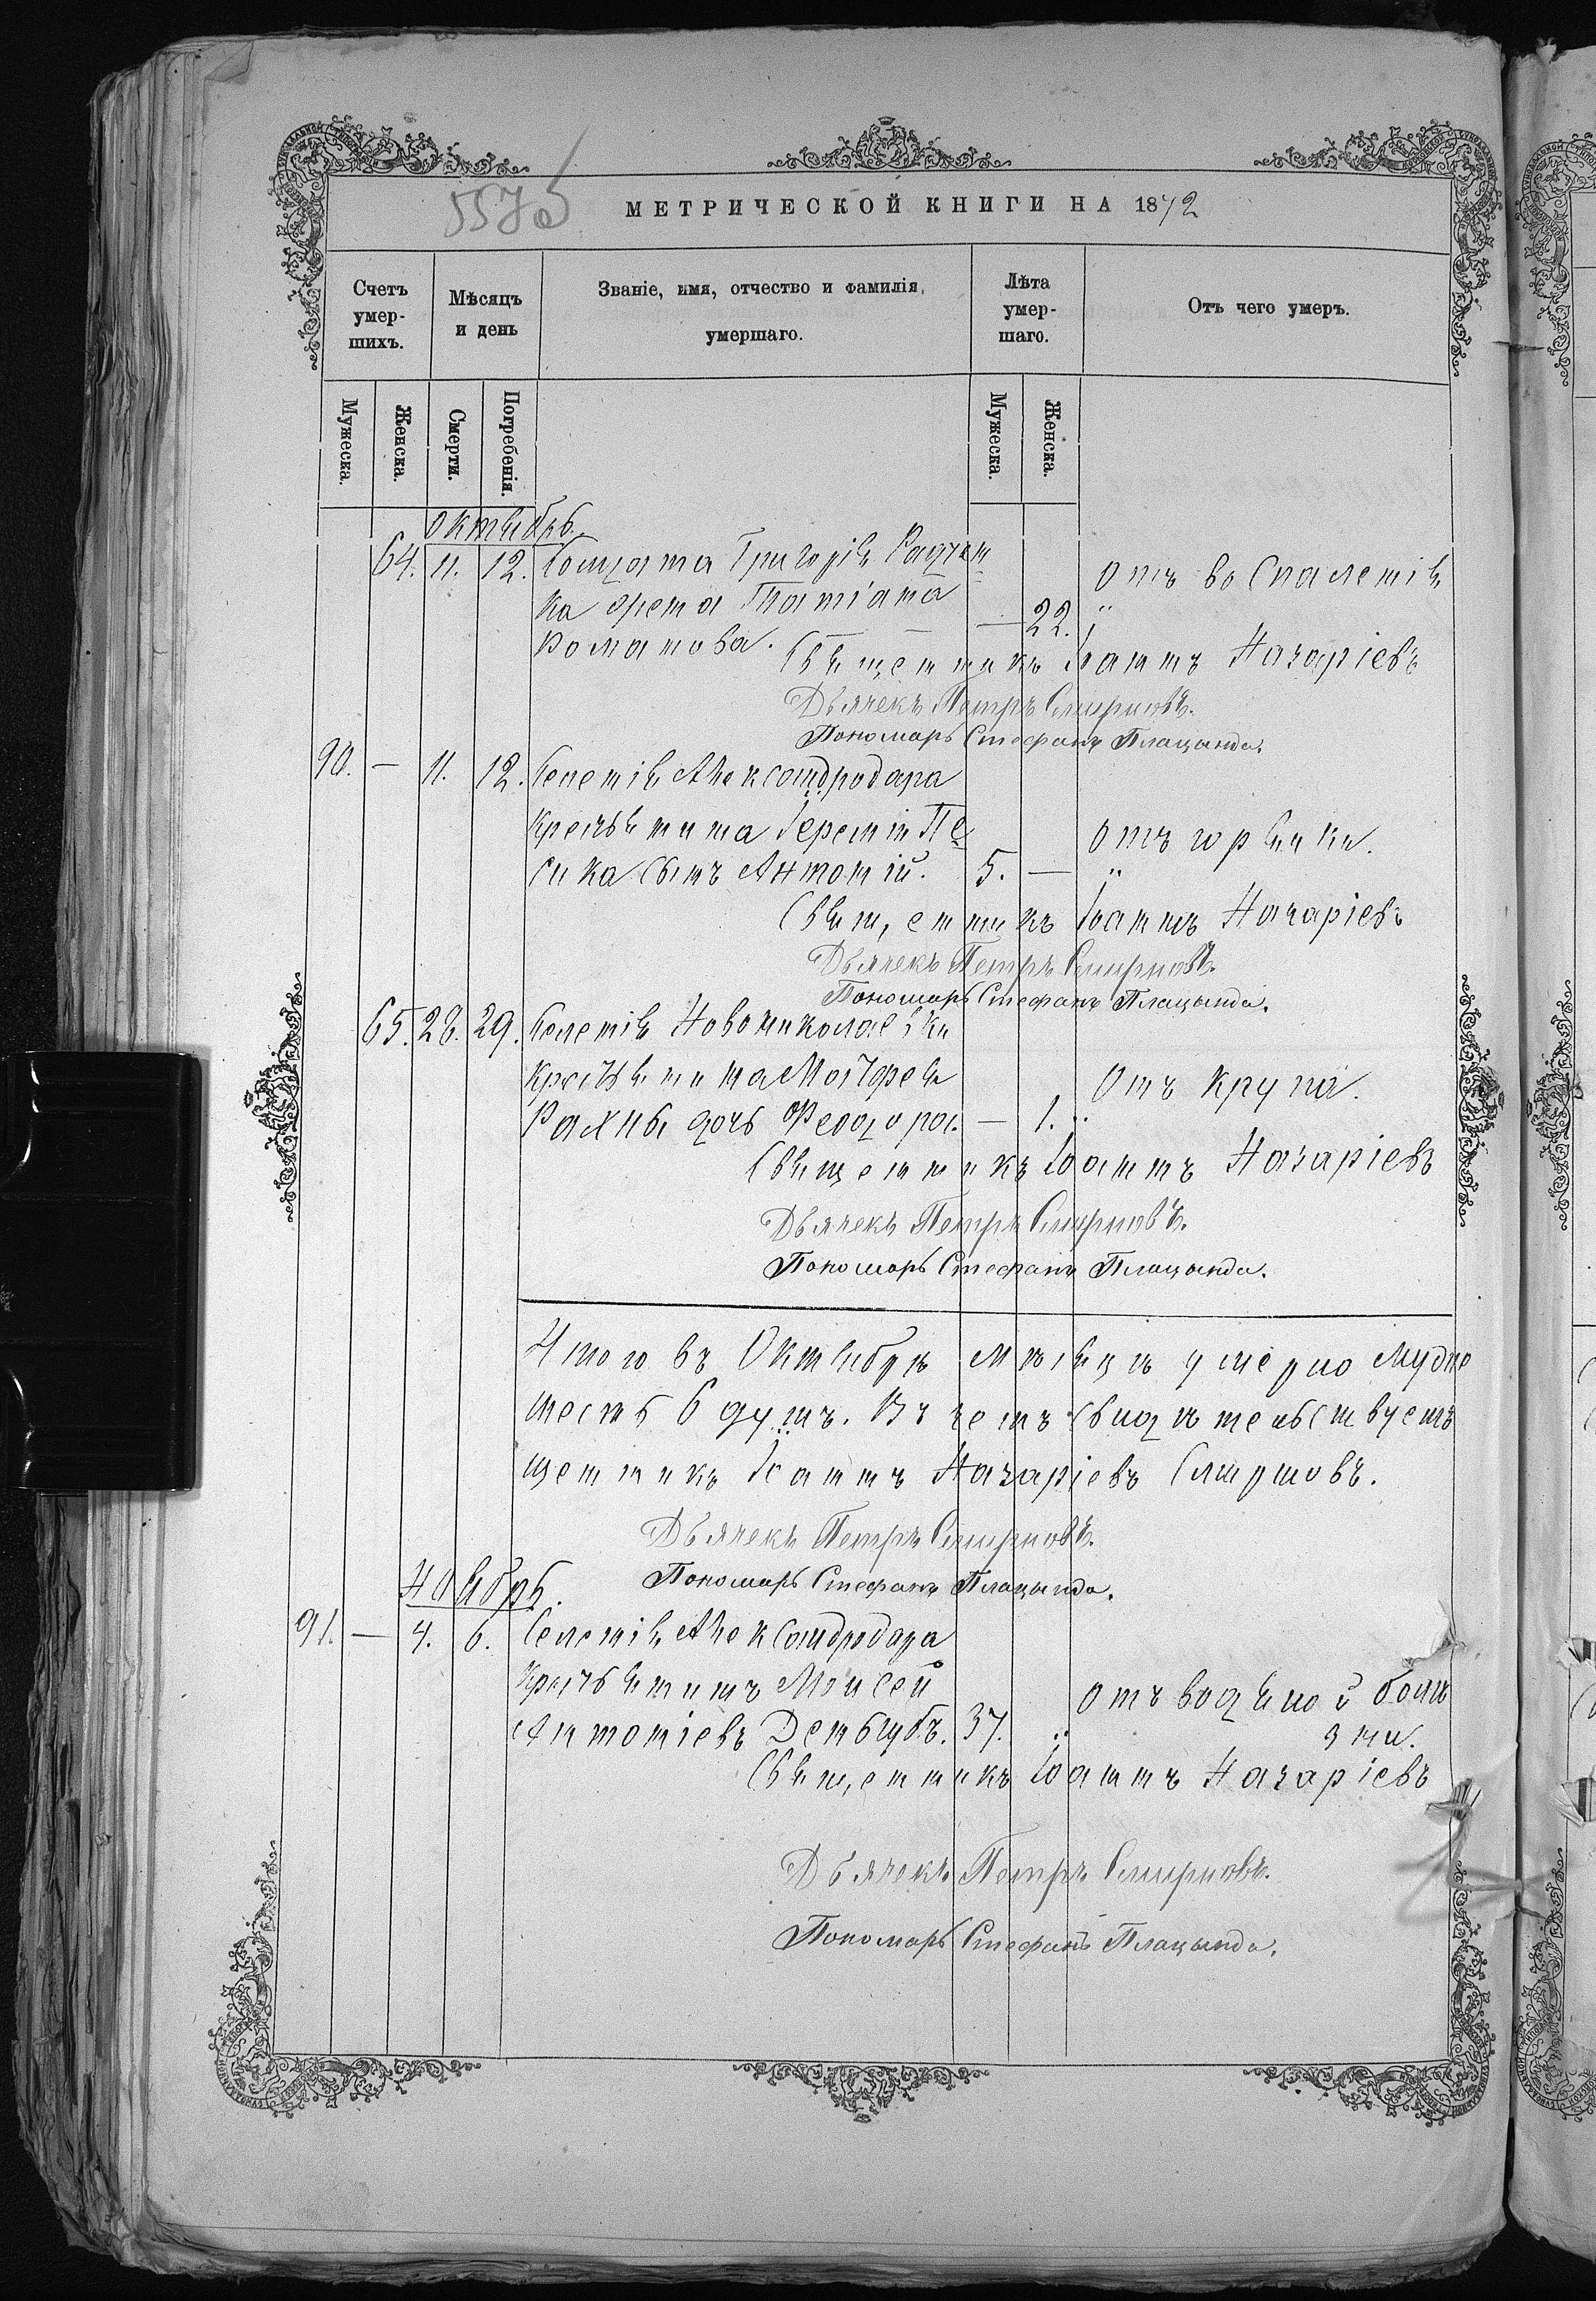 557об
МЕТРИЧЕСКОЙ КНИГИ НА 1872
Счетъ умер-шихъ.
Мѣсяцъ и день
Званіе, имя, отчество и фамилія умершаго.
Лѣта умер-шаго.
Отъ чего умеръ.
Мужеска.
Женска.
Смерти.
Погребенія.
Мужеска.
Женска.
Октябрь.
64. 11. 12. Солдата Григорія Радчен
ка жена Татіана — 22. отъ воспаленія
Романова.
Священникъ Іоаннъ Назаріевъ
Дьячекъ Петръ Смирновъ.
Пономарь Стефанъ Плацында.
90. — 11. 12. Селенія Александродара
крестьянина Терентія Пе
сика сынъ Антоній. 5. — отъ горячки.
Священникъ Іоаннъ Назаріевъ
Дьячекъ Петръ Смирновъ.
Пономарь Стефанъ Плацында.
65. 28. 29. Селенія Новониколаевки
крестьянина Матфея
Рахны дочь Феодора. — 1. Отъ крупа.
Священникъ Іоаннъ Назаріевъ
Дьячекъ Петръ Смирновъ.
Пономарь Стефанъ Плацында.
Итого въ Октябрѣ мѣсяцѣ умерло
шесть 6 душъ. Въ чемъ свидѣтельствуетъ
щенникъ Іоаннъ Назаріевъ Смирновъ.
Дьячекъ Петръ Смирновъ.
Пономарь Стефанъ Плацында.
Ноябрь.
91. — 4. 6. Селенія Александродара
крестьянинъ Моисей
Антоніевъ 37. отъ водяной болѣ
зни.
Священникъ Іоаннъ Назаріевъ
Дьячекъ Петръ Смирновъ.
Пономарь Стефанъ Плацында.